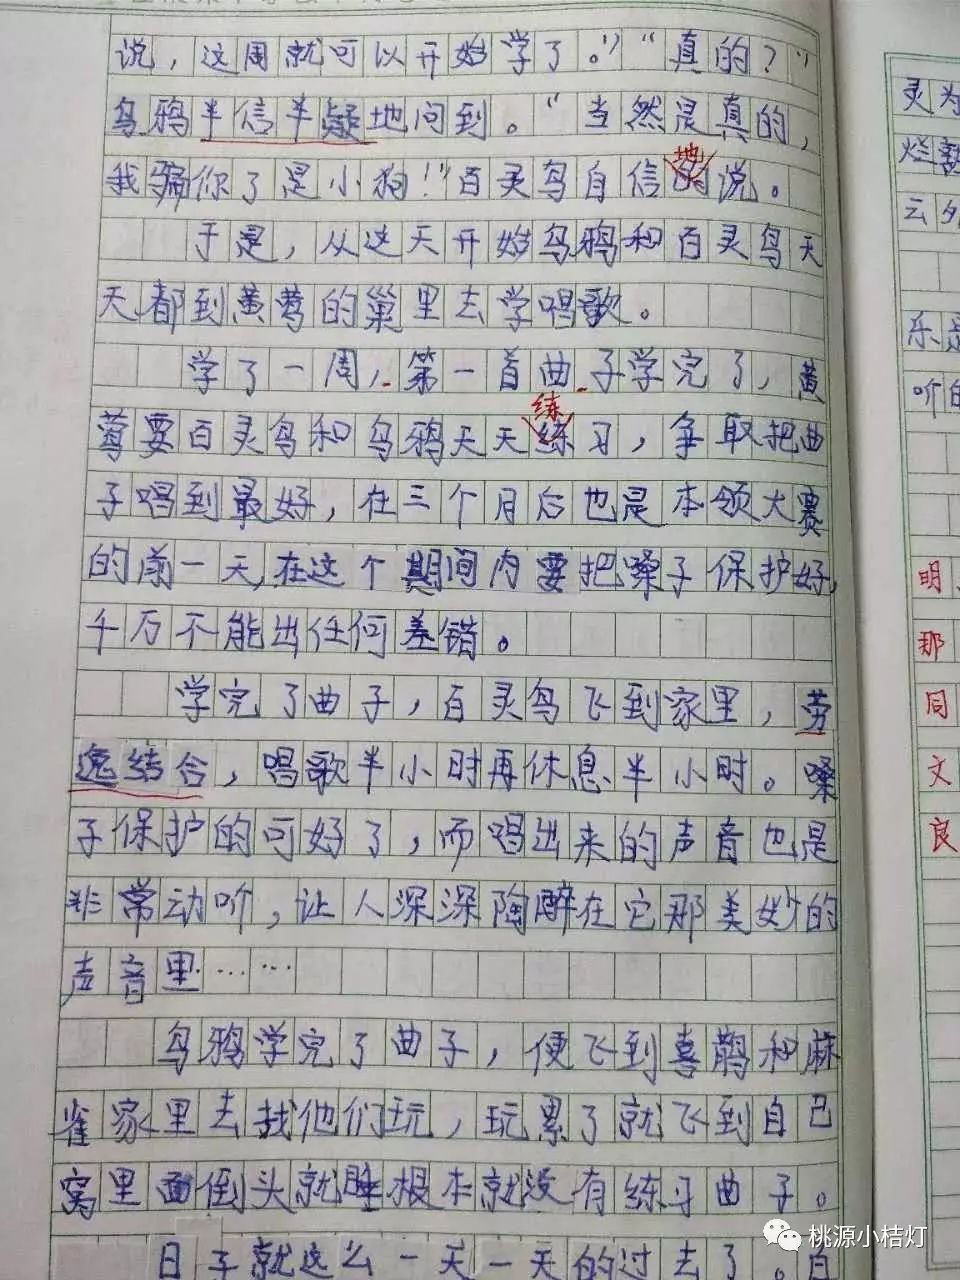 说，这周就可以开始学了。”“真的？”
乌鸦半信半疑地问到。“当然是真的，
我骗你了是小狗！”百灵鸟自信地说。
于是，从这天开始乌鸦和百灵鸟天
天都到黄莺的巢里去学唱歌。
学了一周，第一首曲子学完了，黄
莺要百灵鸟和乌鸦天天练习，争取把曲
练
子唱到最好，在三个月后也是本领大赛
的前一天，在这个期间内要把嗓子保护好，
千万不能出任何差错。
学完了曲子，百灵鸟飞到家里，劳
逸结合，唱歌半小时再休息半小时。嗓
子保护的可好了，而唱出来的声音也是
非常动听，让人深深陶醉在它那美妙的
声音里……
乌鸦学完了曲子，便飞到喜鹊和麻
雀家里去找他们玩，玩累了就飞到自己
窝里面倒头就睡根本就没有练习曲子。
日子就这么一天一天的过去了。百
灵为
烂熟
云外
乐是
听的
明
那
同
文
良
桃源小桔灯